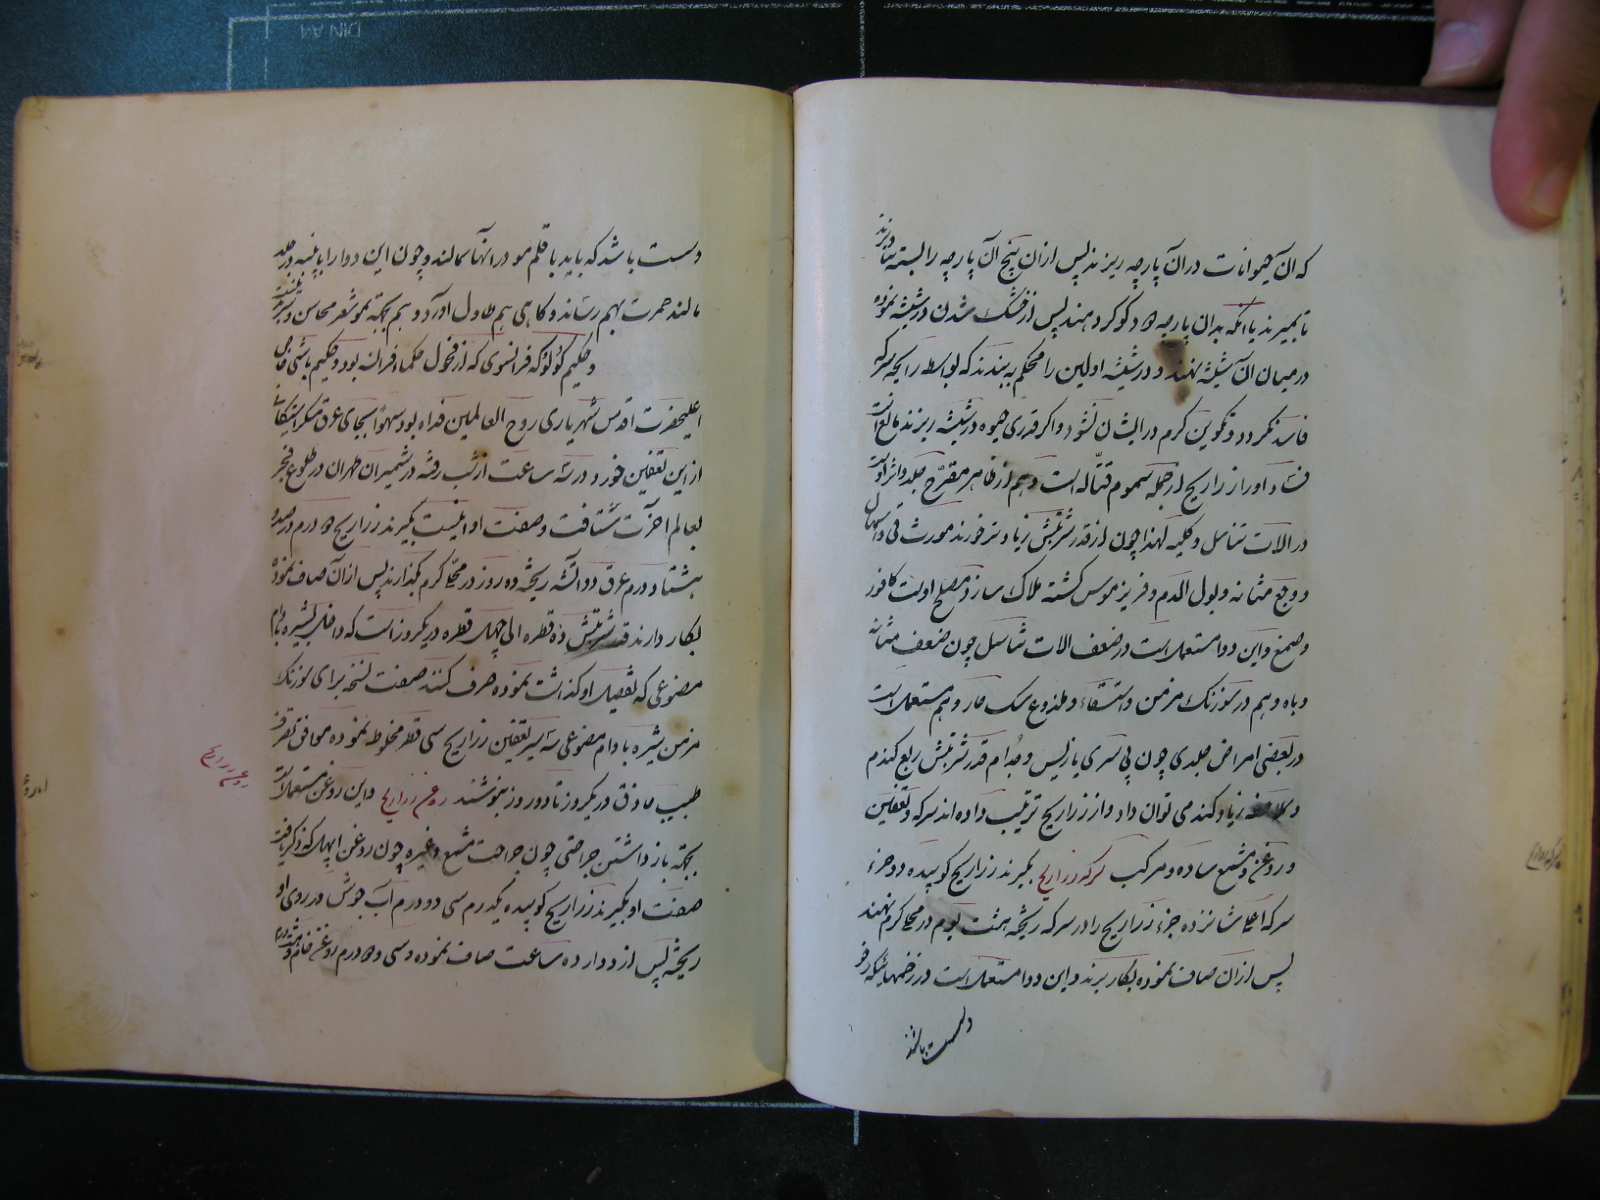 که آن حیوانات در آن پارچه ریزند پس از آن پنج آن پارچه را بسته بیاویزند
تا بمیرند یا آنکه بدان پارچه دود کوکرد دهند پس از خشک شدن در شیشه نموده
در میان آن شیشه نهند و در شیشه اولین را محکم به بندند که بواسطه رایحه سرکه
فاسد نکردد و تکوین کرم در ایشان نشود و اکر قدری جیوه در شیشه ریزند مانع است
فساد او را زراریح از جمله سموم قتاله است و هم از ظاهر مقرح جلد و اثر اوست
در آلات تناسل و کلیه لهذا چون از قدر شربتش زیادتر خورند مورث قی و اسهال
و وجع مثانه و بول الدم و فریزموس کشته هلاک سازد مصلح اوست کافور
و صمغ و این دوا مستعمل است در ضعف آلات تناسل چون ضعف مثانه
و باه و هم در سوزنک مزمن و استسقاء و ملذوع سک هار و هم مستعمل است
در بعضی امراض جلدی چون پی سری یازیس و جذام قدر شربتش ربع کندم
و زیاد کند می توان داد و از زراریح ترتیب داده اند سرکه و تعفین
و روغن و مشمع ساده و مرکب سرکه زراریح بکیرند زراریح کوبیده دو جزء
سرکه اعلا شانزده جزء زراریح را در سرکه ریخته هشت یوم در جای کرم نهند
پس از آن صاف نموده بکار برند و این دوا مستعمل است در زخمهائیکه رفو
دست باشد
سرکه زراریح
دست باشد که باید با قلم مو در آنها بمالند و چون این دوا را با پنبه در جلد
مالند حمرت بهم رساند و کاهی هم طاول آورد و هم بجهته نمو شعر محاسن و سر
و حکیم کولوکه فرانسوی که از فحول حکماء فرانسه بود و حکیم باشی خاص
اعلیحضرت اقدس شهریاری روح العالمین فداه بود سهواً بجای عرق
از این تعفین خورد و در سه ساعت از شب رفته در شمیران طهران در طلوع فجر
بعالم آخرت شتافت و صفت او اینست بکیرند زراریح ده درم در صد و
هشتاد درم عرق دو آتشه ریخته ده روز در جای کرم بکذارند پس از آن صاف نموده
بکار دارند قدر شربتش ده قطره الی چهل قطره در یکروز است که داخل شیره بادام
مصنوعی که تفصیل او کذاشت نموده صرف کنند صفت نسخه برای سوزنک
مزمن شیره بادام مصنوعی سه سیر تعفین زراریح سی قطره مخلوط نموده موافق
طبیب حاذق در یکروز تا دو روز بنوشند روغن زراریح و این روغن مستعمل است
بجهته باز داشتن جراحتی چون جراحت مشمع و غیره چون روغن ابهل که ذکر یافت
صفت او بکیرند زراریح کوبیده یکدرم سی دو درم آب جوش در روی او
ریخته پس از دوازده ساعت صاف نموده و سی و دو درم روغن خام
روغن زراریح